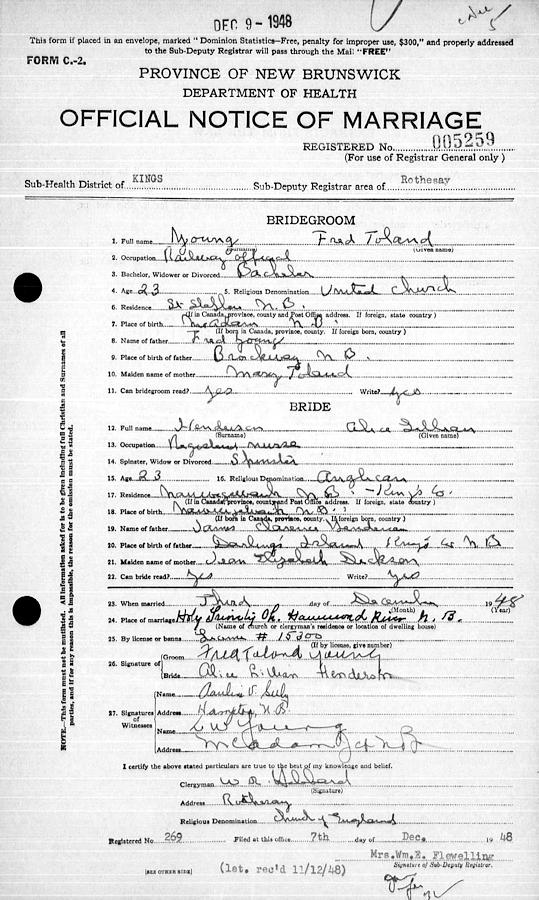 DEC 9 - 1948
This form if placed in an envelope, marked "Dominion Statistics—Free, penalty for improper use, $300," and properly addressed
to the Sub-Deputy Registrar will pass through the Mail "FREE"
FORM C.-2.
PROVINCE OF NEW BRUNSWICK
DEPARTMENT OF HEALTH
OFFICIAL NOTICE OF MARRIAGE
REGISTERED No. 005259
(For use of Registrar General only)
Sub-Health District of KINGS Sub-Deputy Registrar area of Rothesay
BRIDEGROOM
1. Full name Young Fred Toland
(Surname) (Given name)
2. Occupation Railway official
3. Bachelor, Widower or Divorced Bachelor
4. Age 23 5. Religious Denomination United Church
6. Residence St Stephen N.B.
(If in Canada, province, county and Post Office address. If foreign, state country)
7. Place of birth McAdam N.B.
(If born in Canada, province, county. If foreign born, country)
8. Name of father Fred Young
9. Place of birth of father Brockway N.B.
10. Maiden name of mother Mary Toland
11. Can bridegroom read? yes Write? yes
BRIDE
12. Full name Henderson Alice Lillian
(Surname) (Given name)
13. Occupation Registered nurse
14. Spinster, Widow or Divorced Spinster
15. Age 23 16. Religious Denomination Anglican
17. Residence Nauwigewauk N.B. - Kings Co.
(If in Canada, province, county and Post Office address. If foreign, state country)
18. Place of birth Nauwigewauk N.B.
(If born in Canada, province, county. If foreign, born country)
19. Name of father James Clarence Henderson
20. Place of birth of father Darlings Island Kings Co N B
21. Maiden name of mother Jean Elizabeth Dickson
22. Can bride read? yes Write? yes
23. When married Third day of December 1948
(Month) (Year)
24. Place of marriage Holy Trinity Ch. Hammond River N.B.
(Name of church or clergyman's residence or location of dwelling house)
25. By license or banns License # 15300
(If by license, give number)
26. Signature of
Groom Fred Toland Young
Bride Alice Lillian Henderson
27. Signatures of Witnesses
Name Pauline V. Seely
Address Hampton, N.B.
Name L W Young
Address McAdam Jct N B
I certify the above stated particulars are true to the best of my knowledge and belief.
Clergyman W R Hibbard
(Signature)
Address Rothesay
Religious Denomination Church of England
Registered No 269 Filed at this office 7th day of Dec. 1948
Mrs.Wm.E. Flewelling
Signature of Sub-Deputy Registrar.
[SEE OTHER SIDE] (let. rec'd 11/12/48)
NOTE.—This form must not be mutilated. All information asked for is to be given including full Christian and Surnames of all
parties, and if for any reason this is impossible, the reason for the omission must be stated.